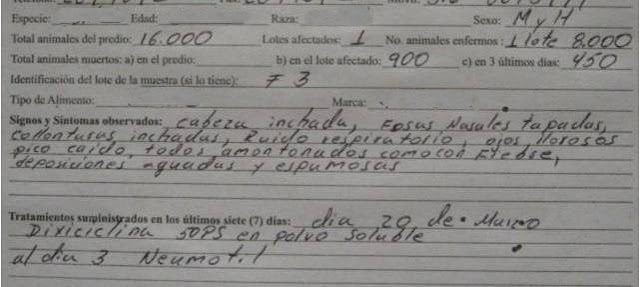 Especie: Edad: Raza: Sexo: M y H
Total animales del predio: 16.000 Lotes afectados: 1 No. animales enfermos: 1 lote 8.000
Total animales muertos: a) en el predio: b) en el lote afectado: 900 c) en 3 últimos dias: 450
Identificación del lote de la muestra (si lo tiene): # 3
Tipo de Alimento: Marca:
Signos y Síntomas observados: cabeza inchada, Fosus Nasales tapadas,
inchadas, Ruido respiratorio, ojos llorosos
pico caido, todos amontonados como con Fiebre,
deposiciones aguadas y espumosas
Tratamientos suministrados en los últimos siete (7) días: dia 20 de Marzo
Dixiciclina 50PS en polvo Soluble
al dia 3 Neumotil